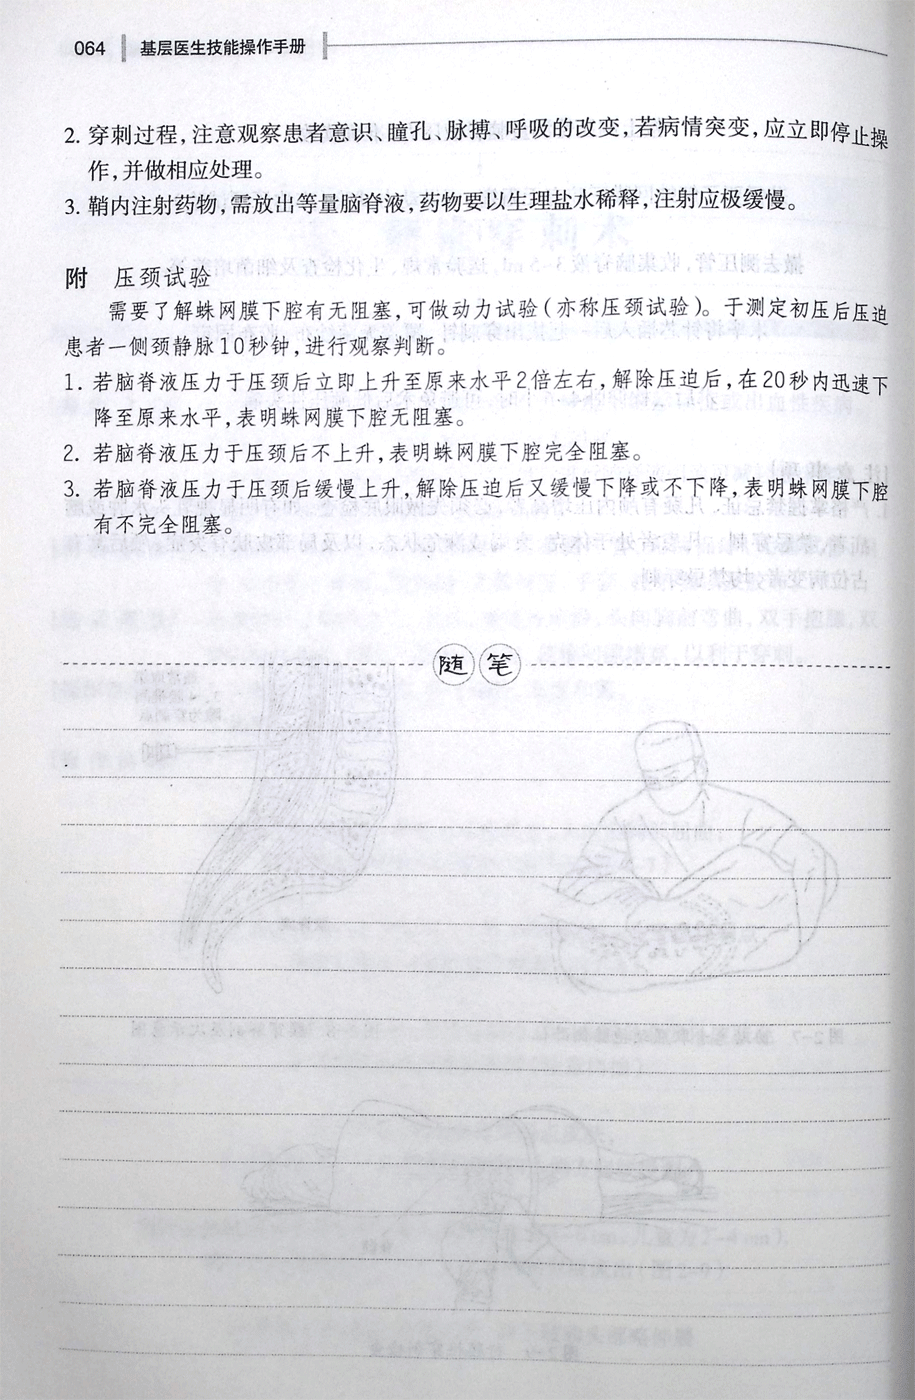 064 基层医生技能操作手册
2. 穿刺过程,注意观察患者意识、瞳孔、脉搏、呼吸的改变,若病情突变,应立即停止操
作,并做相应处理。
3. 鞘内注射药物,需放出等量脑脊液,药物要以生理盐水稀释,注射应极缓慢。
附 压颈试验
需要了解蛛网膜下腔有无阻塞,可做动力试验(亦称压颈试验)。于测定初压后压迫
患者一侧颈静脉10秒钟,进行观察判断。
1. 若脑脊液压力于压颈后立即上升至原来水平2倍左右,解除压迫后,在20秒内迅速下
降至原来水平,表明蛛网膜下腔无阻塞。
2. 若脑脊液压力于压颈后不上升,表明蛛网膜下腔完全阻塞。
3. 若脑脊液压力于压颈后缓慢上升,解除压迫后又缓慢下降或不下降,表明蛛网膜下腔
有不完全阻塞。
随笔